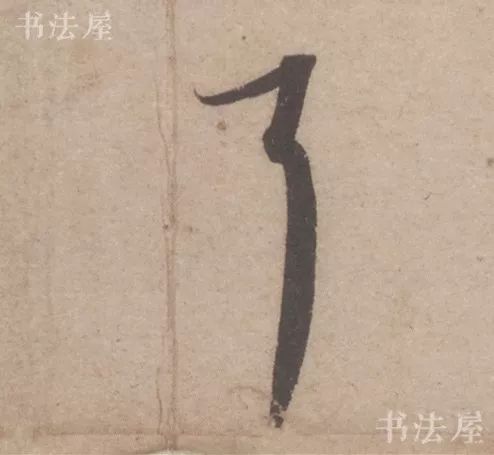 书法屋
了
书法屋